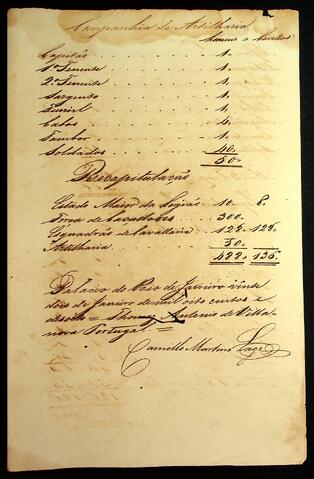 Companhia de Artilharia
homens e Cavallos
Capitão 1.
1º Tenente 1.
2º Tenente 1.
Sargento 1.
Furriel 1.
Cabos 4.
Tambor 1.
Soldados 40.
50.
Recapitulação
Estado Maior da Legião 10. 8.
Força de Cacadores 300.
Esquadrão de Cavallaria 128. 128.
Artilharia 50.
422. 136.
Palacio do Rio de Janeiro vinte
dois de Janeiro de mil oito centos e
desoito = Thomaz Antonio de Villa
nova Portugal. =
Camillo Martins Lage